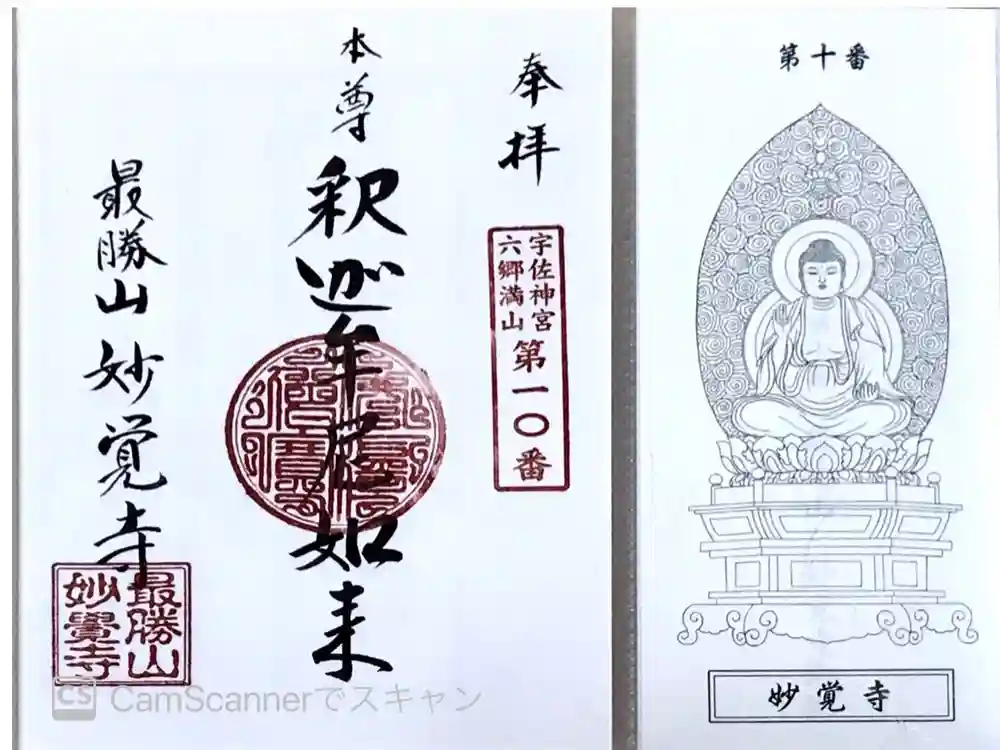 奉拝
宇佐神宮
六郷満山
第一〇番
本尊
釈迦牟尼如来
最勝山 妙覚寺
最勝山
妙覺寺
CS CamScannerでスキャン
第十番
妙覚寺